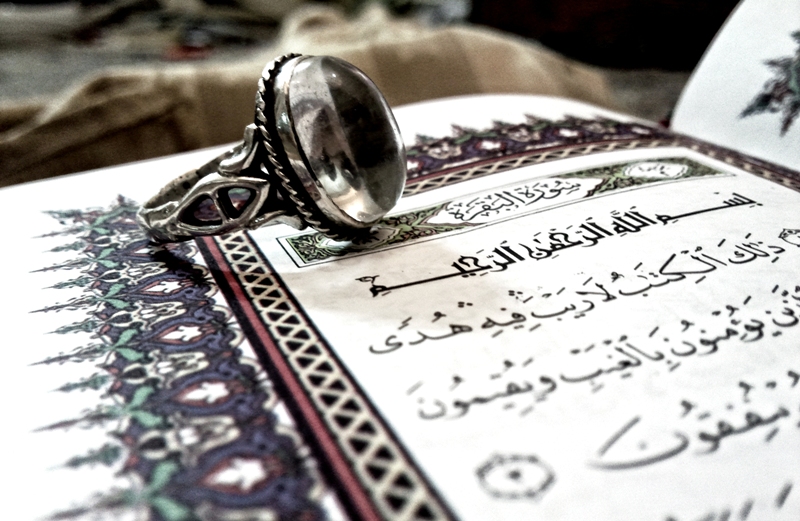 سُورَةُ البَقَرَةِ
بِسْمِ اللَّهِ الرَّحْمَٰنِ الرَّحِيمِ
ذَٰلِكَ الْكِتَٰبُ لَا رَيْبَ فِيهِ هُدًى
يُؤْمِنُونَ بِالْغَيْبِ وَيُقِيمُونَ
يُنفِقُونَ